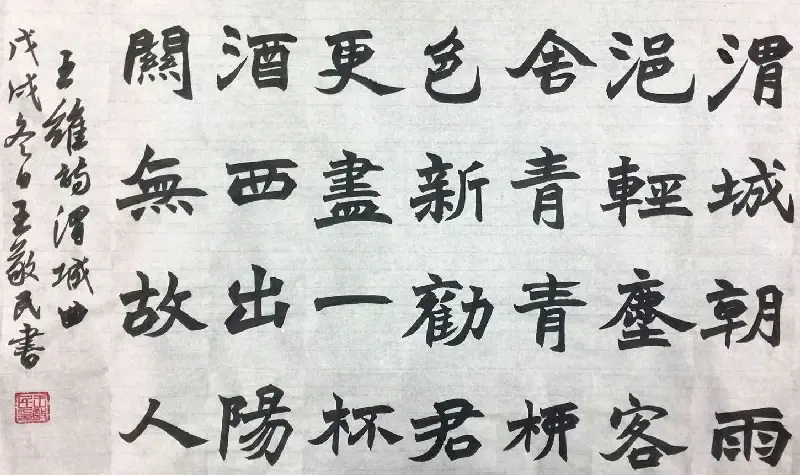 渭城朝雨
浥輕塵客
舍青青柳
色新勸君
更盡一杯
酒西出陽
關無故人
王維詩渭城曲
戊戌冬日王敬民書